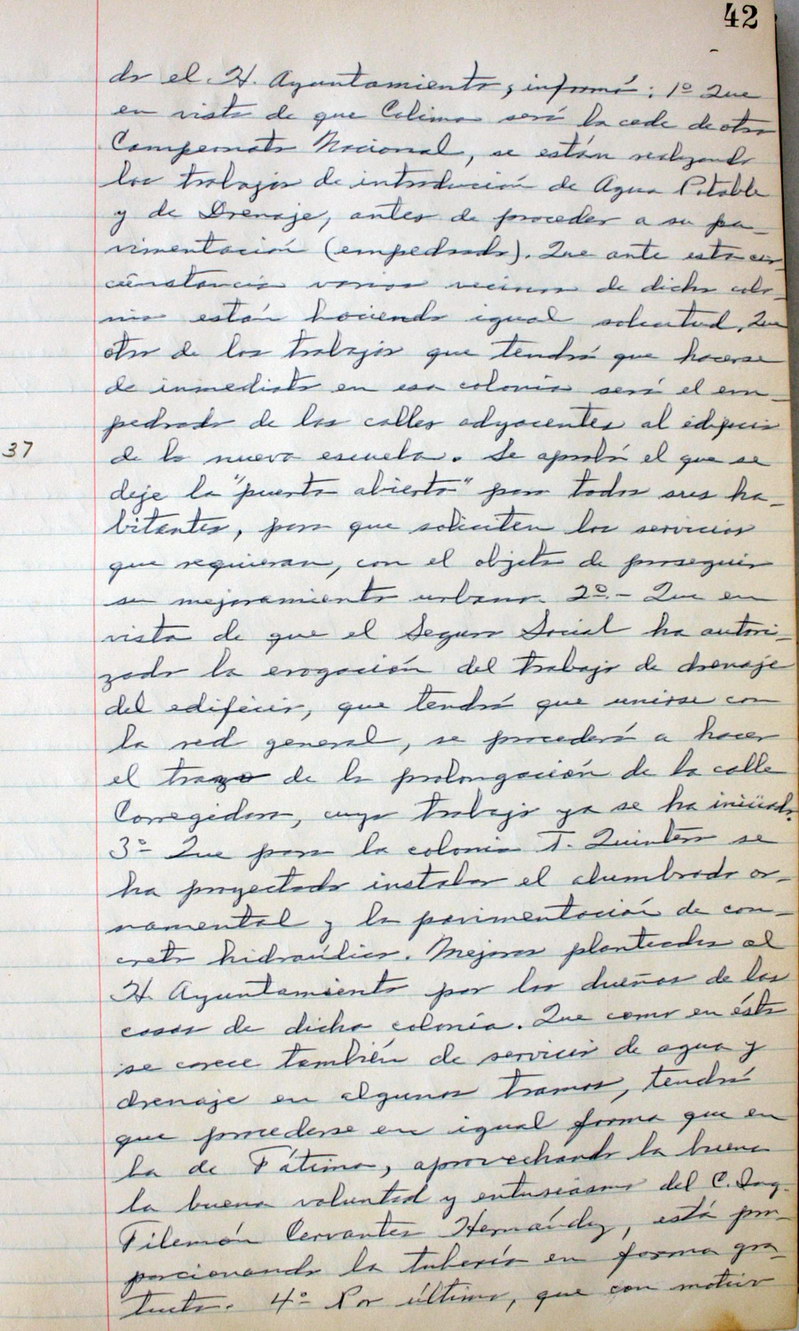 42
do el H. Ayuntamiento, informó: 1º Que
en vista de que Colima será la cede de otro
Campeonato Nacional, se están realizando
los trabajos de introdución de Agua Potable
y de Drenaje, antes de proceder a su pa-
vimentación (empedrado). Que ante esta cir-
cunstancia varios vecinos de dicha colo-
nia están haciendo igual solicitud. Que
otro de los trabajos que tendrá que hacerse
de inmediato en esa colonia será el em-
pedrado de las calles adyacentes al edificio
37 de la nueva escuela. Se aprobó el que se
deje la "puerta abierta" para todos sus ha-
bitantes, para que soliciten los servicios
que requieran, con el objeto de proseguir
su mejoramiento urbano. 2º.- Que en
vista de que el Seguro Social ha autori-
zado la erogación del trabajo de drenaje
del edificio, que tendrá que unirse con
la red general, se procederá a hacer
el trazo de la prolongación de la calle
Corregidora, cuyo trabajo ya se ha iniciado.
3º Que para la colonia T. Quintero se
ha proyectado instalar el alumbrado or-
namental y la pavimentación de con-
creto hidraúlico. Mejoras planteadas al
H. Ayuntamiento por los dueños de las
casas de dicha colonia. Que como en ésta
se carece también de servicio de agua y
drenaje en algunos tramos, tendrá
que procederse en igual forma que en
la de Fátima, aprovechando la buena
la buena voluntad y entusiasmo del C. Ing.
Filemón Cervantes Hernández, está pro-
porcionando la tubería en forma gra-
tuita. 4º Por último, que con motivo